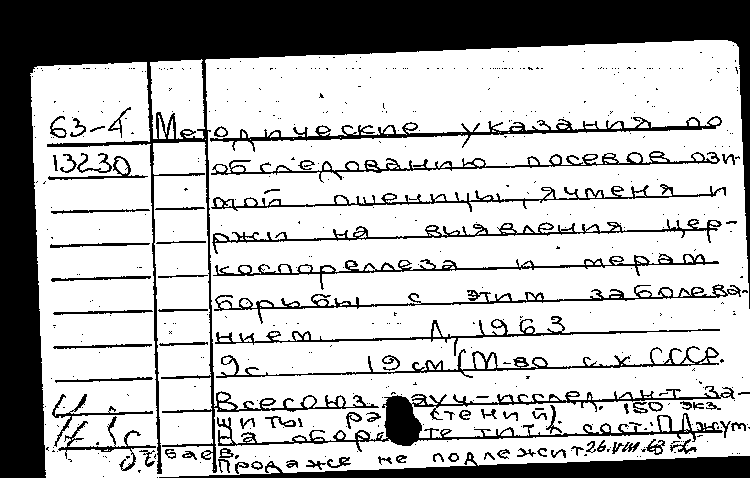 63-4. Методические указания по
13230 обследованию посевов ози-
мой пшеницы, ячменя и
ржи на выявления цер-
коспореллеза и мерам
борьбы с этим заболева-
нием. Л., 1963
9с. 19 см (М-во с.х СССР.
Всесоюз. науч-исслед. ин-т за-
щиты растений) 150 экз.
На обороте тит.л. сост.: П Джум.
баев.
Продаже не подлежит 26.VIII.63